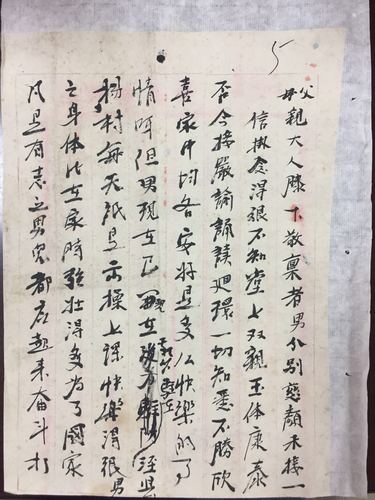 5
父母親大人膝下敬禀者男分別慈顏未接一
信掛念得狠不知堂上双親玉体康泰
否今接嚴諭誦讀廻環一切知悉不勝欣
喜家中均各安好是多么快樂的了
情呀但男現在已在
楊村每天祇是出操上課快樂得狠男
之身体比在家時強壯得多为了國家
凡是有志之男兒都应起来奋斗打